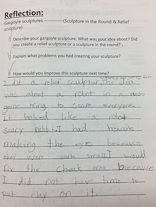 Reflection:
Gargoyle sculptures (Sculpture in the Round & Relief
sculpture)
Describe your gargoyle sculpture. What was your idea about? Did
you create a relief sculpture or a sculpture in the round?
Explain what problems you had creating your sculpture?
How would you improve this sculpture next time?
I did a relief sculpture. The
was about a robot
going to scare everyone.
It looked like a robot
scary robot. I had
making the eye because
they were small. I would
fix the cheek one because
I did not have time to
put clay on it.